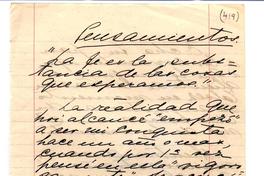 (419)
Pensamientos.
"La fe es la subs-
tancia de las cosas
que esperamos."
La realidad que
hoy alcancé "empezó"
a ser mi conquista
hace un año o mas,
cuando por 1ª vez
pensé en ello